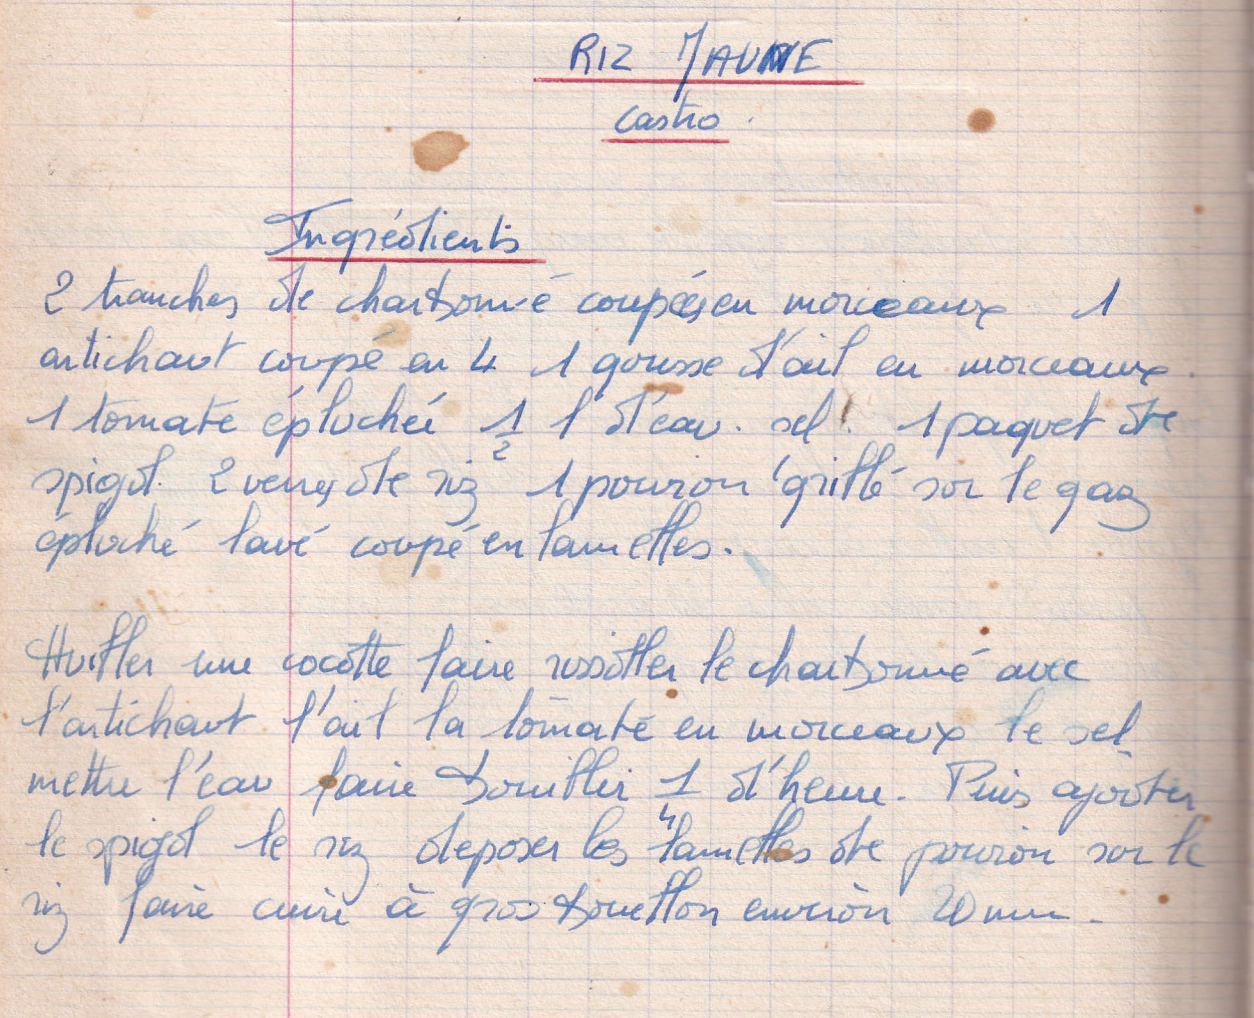 RIZ JAUNE
Castro.
Ingrédients
2 tranches de charbonné coupées en morceaux 1
artichaut coupé en 4 1 gousse d'ail en morceaux.
1 tomate épluchée 1/2 l d'eau. sel. 1 paquet de
spigol. 2 verres de riz 1 poivron grillé sur le gaz
épluché lavé coupé en lamelles.
Huiller une cocotte faire rissoller le charbonné avec
l'artichaut l'ail la tomate en morceaux le sel
mettre l'eau faire bouillir 1/4 d'heure. Puis ajouter
le spigol le riz deposer les lamelles de poivron sur le
riz faire cuire à gros bouillon environ 20 mn.